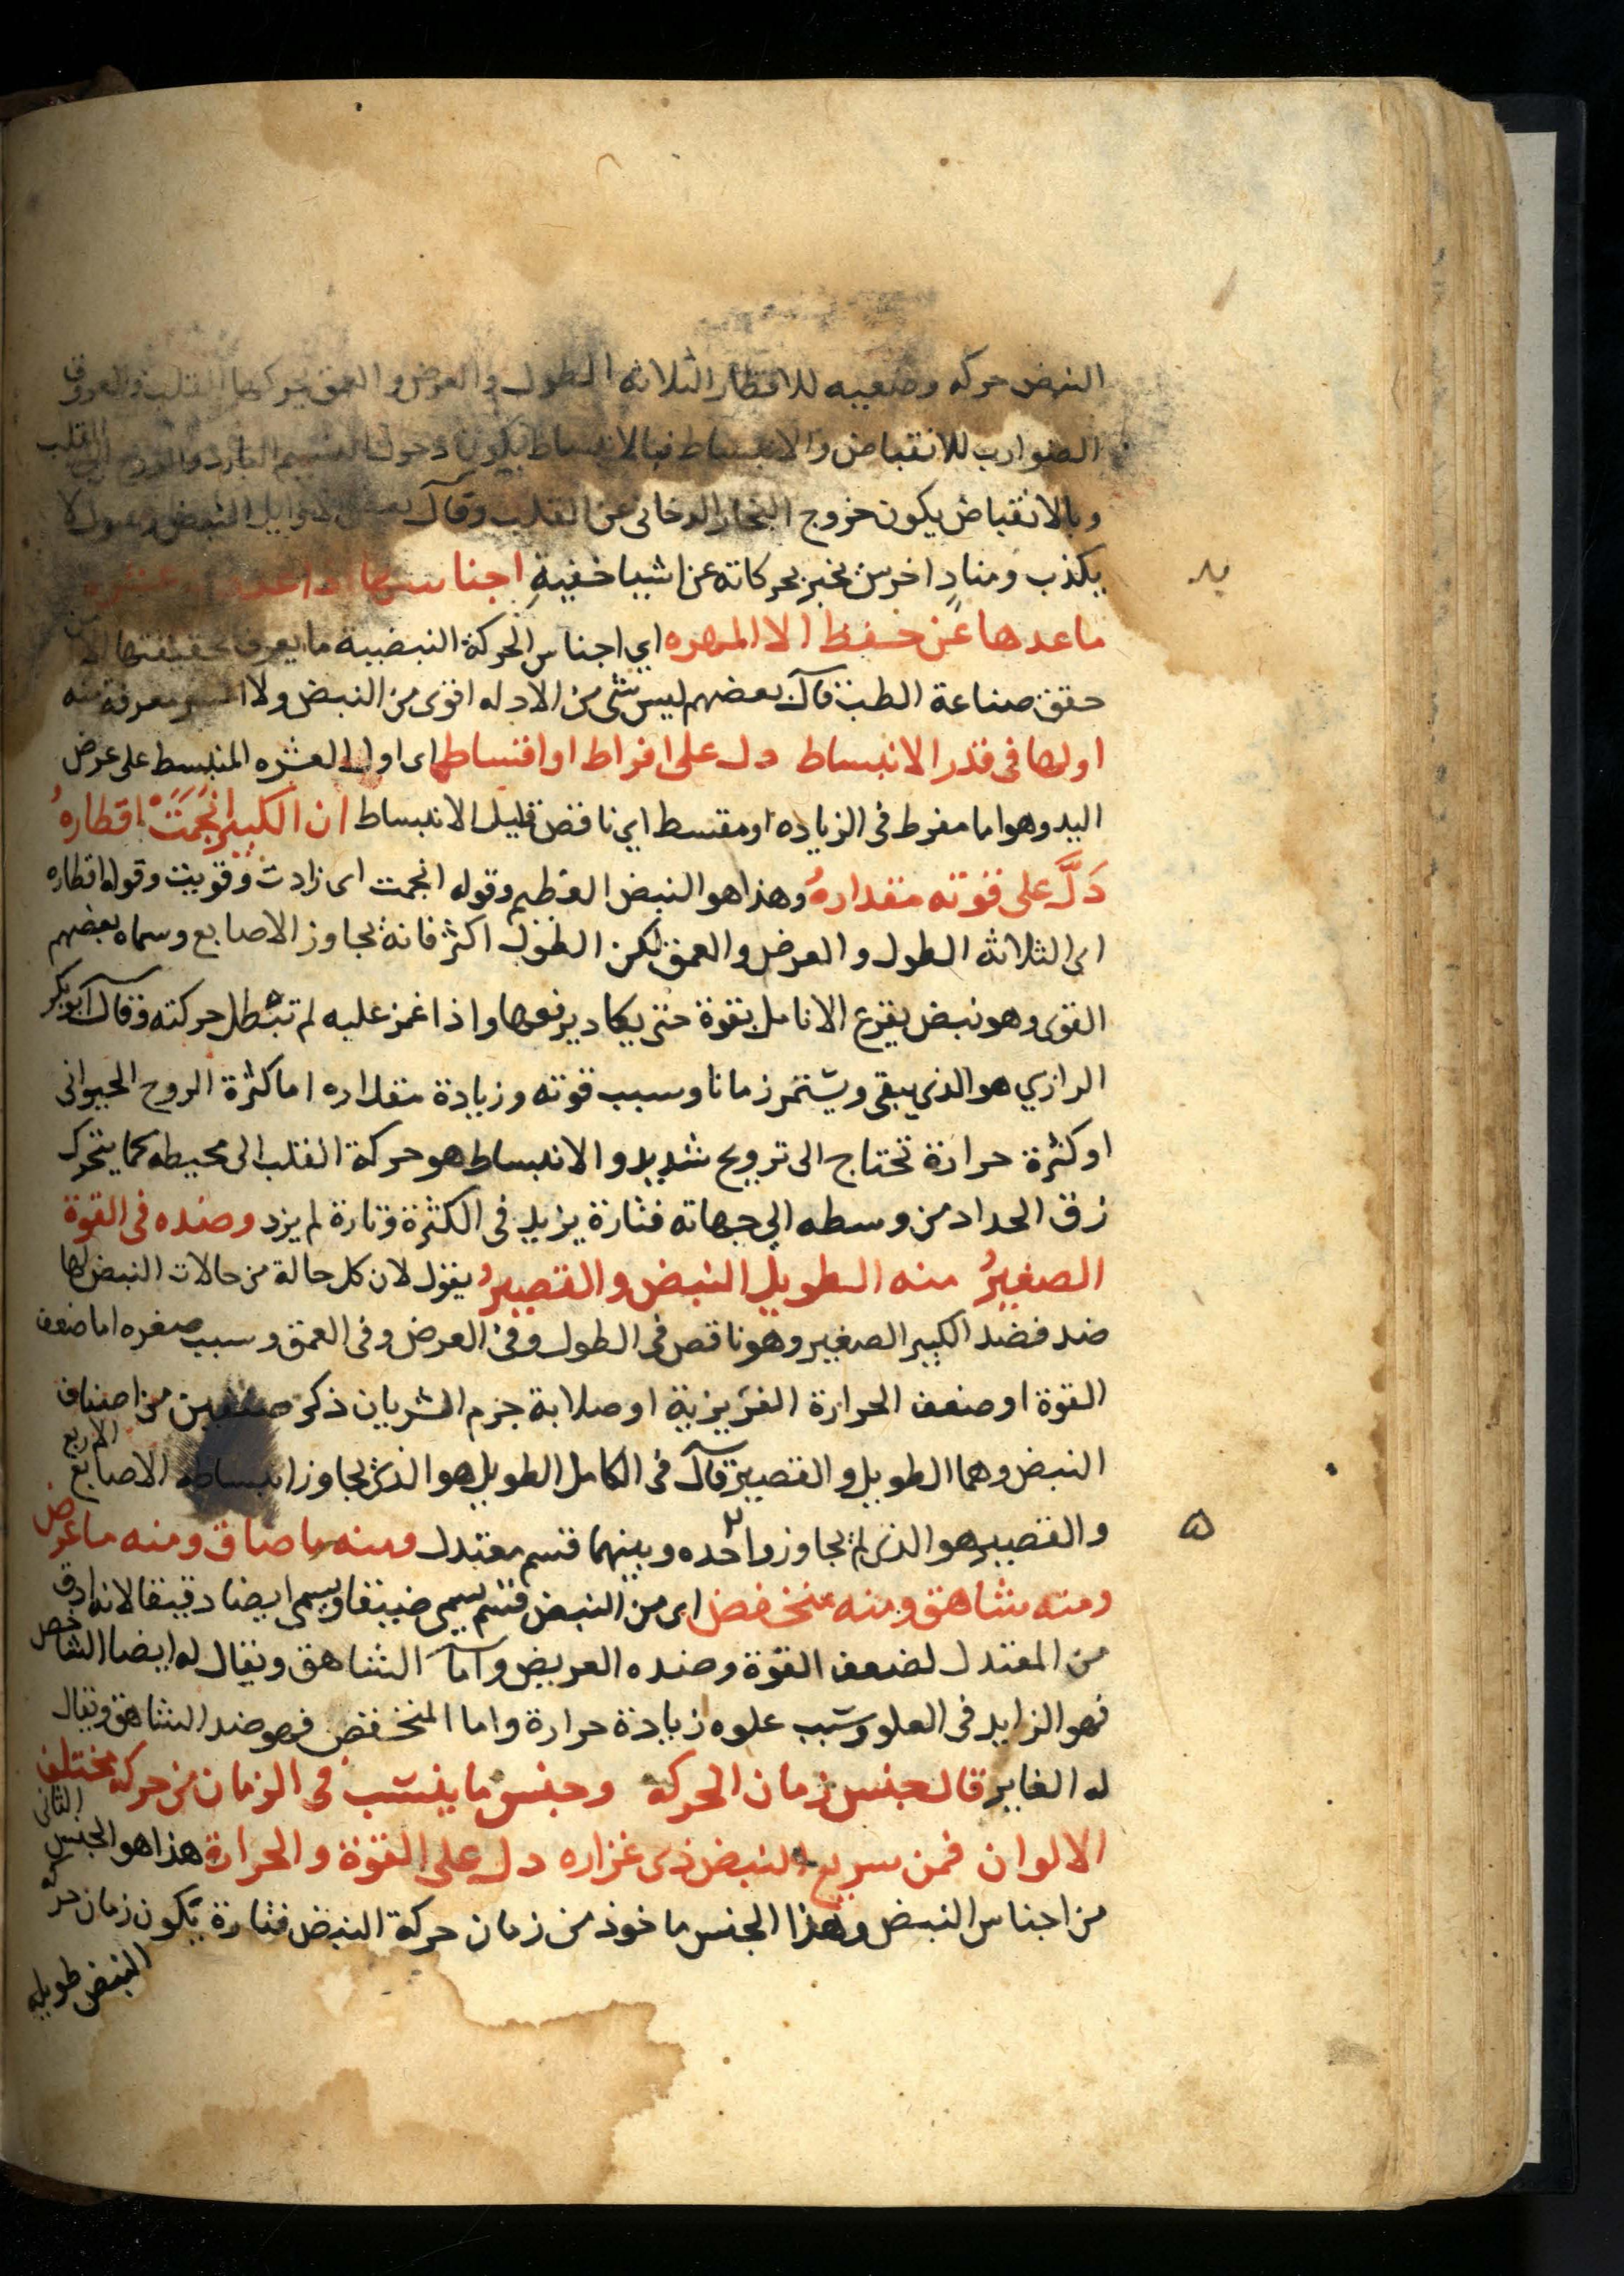 النبض حركه وضعيه للاقطار الثلاثه الطول والعرض والعمق يحركها القلب والعروق
الضوارب للانقباض والانبساط فبالانبساط يكون دخول النسيم البارد والروح الى القلب
وبالانقباض يكون خروج البخار الدخانى عن القلب وقال بعض النبض رسول لا
يكذب ومنادٍ اخرس يخبر بحركاته عن اشيا خفيةٍ اجناسها
ماعدها عن حفظ الا المهره اي اجناس الحركة النبضيية ما يعرف بحقيقتها الا من
حقق صناعة الطب قال بعضهم ليس شى من الادله اقوى من النبض ولا معرفة منه
اولها فى قدر الانبساط دل على افراط او اقتساط اى اول العشره المنبسط على عرض
اليد وهو اما مفرط فى الزياده او مقتسط اي ناقص قليل الانبساط ان الكبير انجمت اقطارهُ
دَلَّ على قوته مقدارهُ وهذا هو النبض العظيم وقوله انجمت اى زادت وقويت وقوله اقطاره
اى الثلاثه الطول والعرض والعمق لكن الطول اكثر فانه يجاوز الاصابع وسماه بعضهم
القوى وهو نبض يقرع الانامل بقوة حتى يكاد يرفعها واذا غمز عليه لم تبطل حركته وقال ابوبكر
الرازي هو الذي يبقى ويستمر زمانا وسبب قوته وزيادة مقداره اما كثرة الروح الحيوانى
او كثرة حرارة تحتاج الى ترويح شديد والانبساط هو حركة القلب الى محيطه كما يتحرك
زق الحداد من وسطه الي جهاته فتارة يزيد فى الكثرة وتارة لم يزد وضده فى القوة
الصغيرُ منه الطويل النبض والقصيرُ يقول لان كل حالة من حالات النبض لها
ضد فضد الكبير الصغير وهو ناقص فى الطول وفى العرض وفى العمق وسبب صغره اما ضعف
القوة او ضعف الحرارة الغريزية او صلابة جرم الشريان ذكر صنفين من اصناف
النبض وهما الطويل والقصير قال فى الكامل الطويل هو الذى يجاوز انبساطه الاصابع الاربع
والقصير هو الذى لم يجاوز واحده وبينهما قسم معتدل ومنه ما ضاق ومنه ما عرض
ومنه شاهق ومنه منخفض اى من النبض قسم يسمى ضيقا ويسمى ايضا دقيقا لانه ادق
من المعتدل لضعف القوة وضده العريض واما الشاهق ويقال له ايضا الشاخص
فهو الزايد فى العلو وسبب علوه زيادة حرارة واما المنخفض فهو ضد الشاهق ويقال
له الغاير قال جنس زمان الحركه وجنس ما ينتسب فى الزمان من حركه مختلف
الالوان فمن سريع النبض ذى غزاره دل على القوة والحرارة هذا هو الجنس الثانى
من اجناس النبض وهذا الجنس ماخوذ من زمان حركة النبض فتارة يكون زمان حركه
النبض طويله